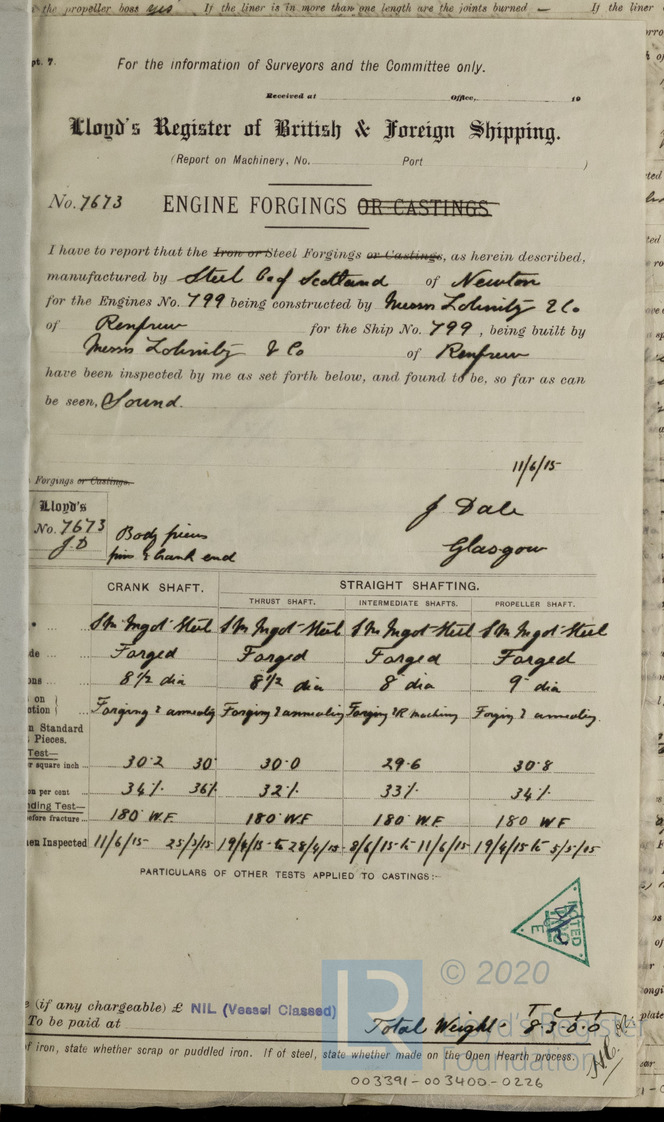 the propeller boss yes If the liner is in more than one length are the joints burned — If the liner
pt. 7.
For the information of Surveyors and the Committee only.
Received at Office, 19
Lloyd's Register of British & Foreign Shipping.
(Report on Machinery, No. Port )
No. 7673 ENGINE FORGINGS OR CASTINGS
I have to report that the Iron or Steel Forgings or Castings, as herein described,
manufactured by Steel Co of Scotland of Newton
for the Engines No. 799 being constructed by Messrs Lobnitz & Co
of Renfrew for the Ship No. 799, being built by
Messrs Lobnitz & Co of Renfrew
have been inspected by me as set forth below, and found to be, so far as can
be seen, Sound.
11/6/15
Forgings or Castings.
Lloyd's
No. 7673
J.D
Body pieces
pins & crank end
J Dale
Glasgow
CRANK SHAFT. STRAIGHT SHAFTING.
THRUST SHAFT. INTERMEDIATE SHAFTS. PROPELLER SHAFT.
SM Ingot Steel SM Ingot Steel SM Ingot Steel SM Ingot Steel
de ... Forged Forged Forged Forged
ons ... 8½ dia 8½ dia 8" dia 9" dia
on
ction Forging & annealing Forging & annealing Forging & R machining Forging & annealing.
n Standard
Pieces.
Test—
r square inch ... 30.2 30 30.0 29.6 30.8
on per cent ... 34% 36% 32% 33% 34%
ding Test—
efore fracture ... 180° W.F 180° W.F 180° W.F 180 W F
en Inspected 11/6/15 25/3/15 19/4/15 to 28/4/15 8/6/15 to 11/6/15 19/4/15 to 5/5/15
PARTICULARS OF OTHER TESTS APPLIED TO CASTINGS:-
© 2020
e (if any chargeable) £ NIL (Vessel Classed)
To be paid at
T C
Total Weight - 8.3.0.0
Lloyd's Register
Foundation
f iron, state whether scrap or puddled iron. If of steel, state whether made on the Open Hearth process.
003391-003400-0226